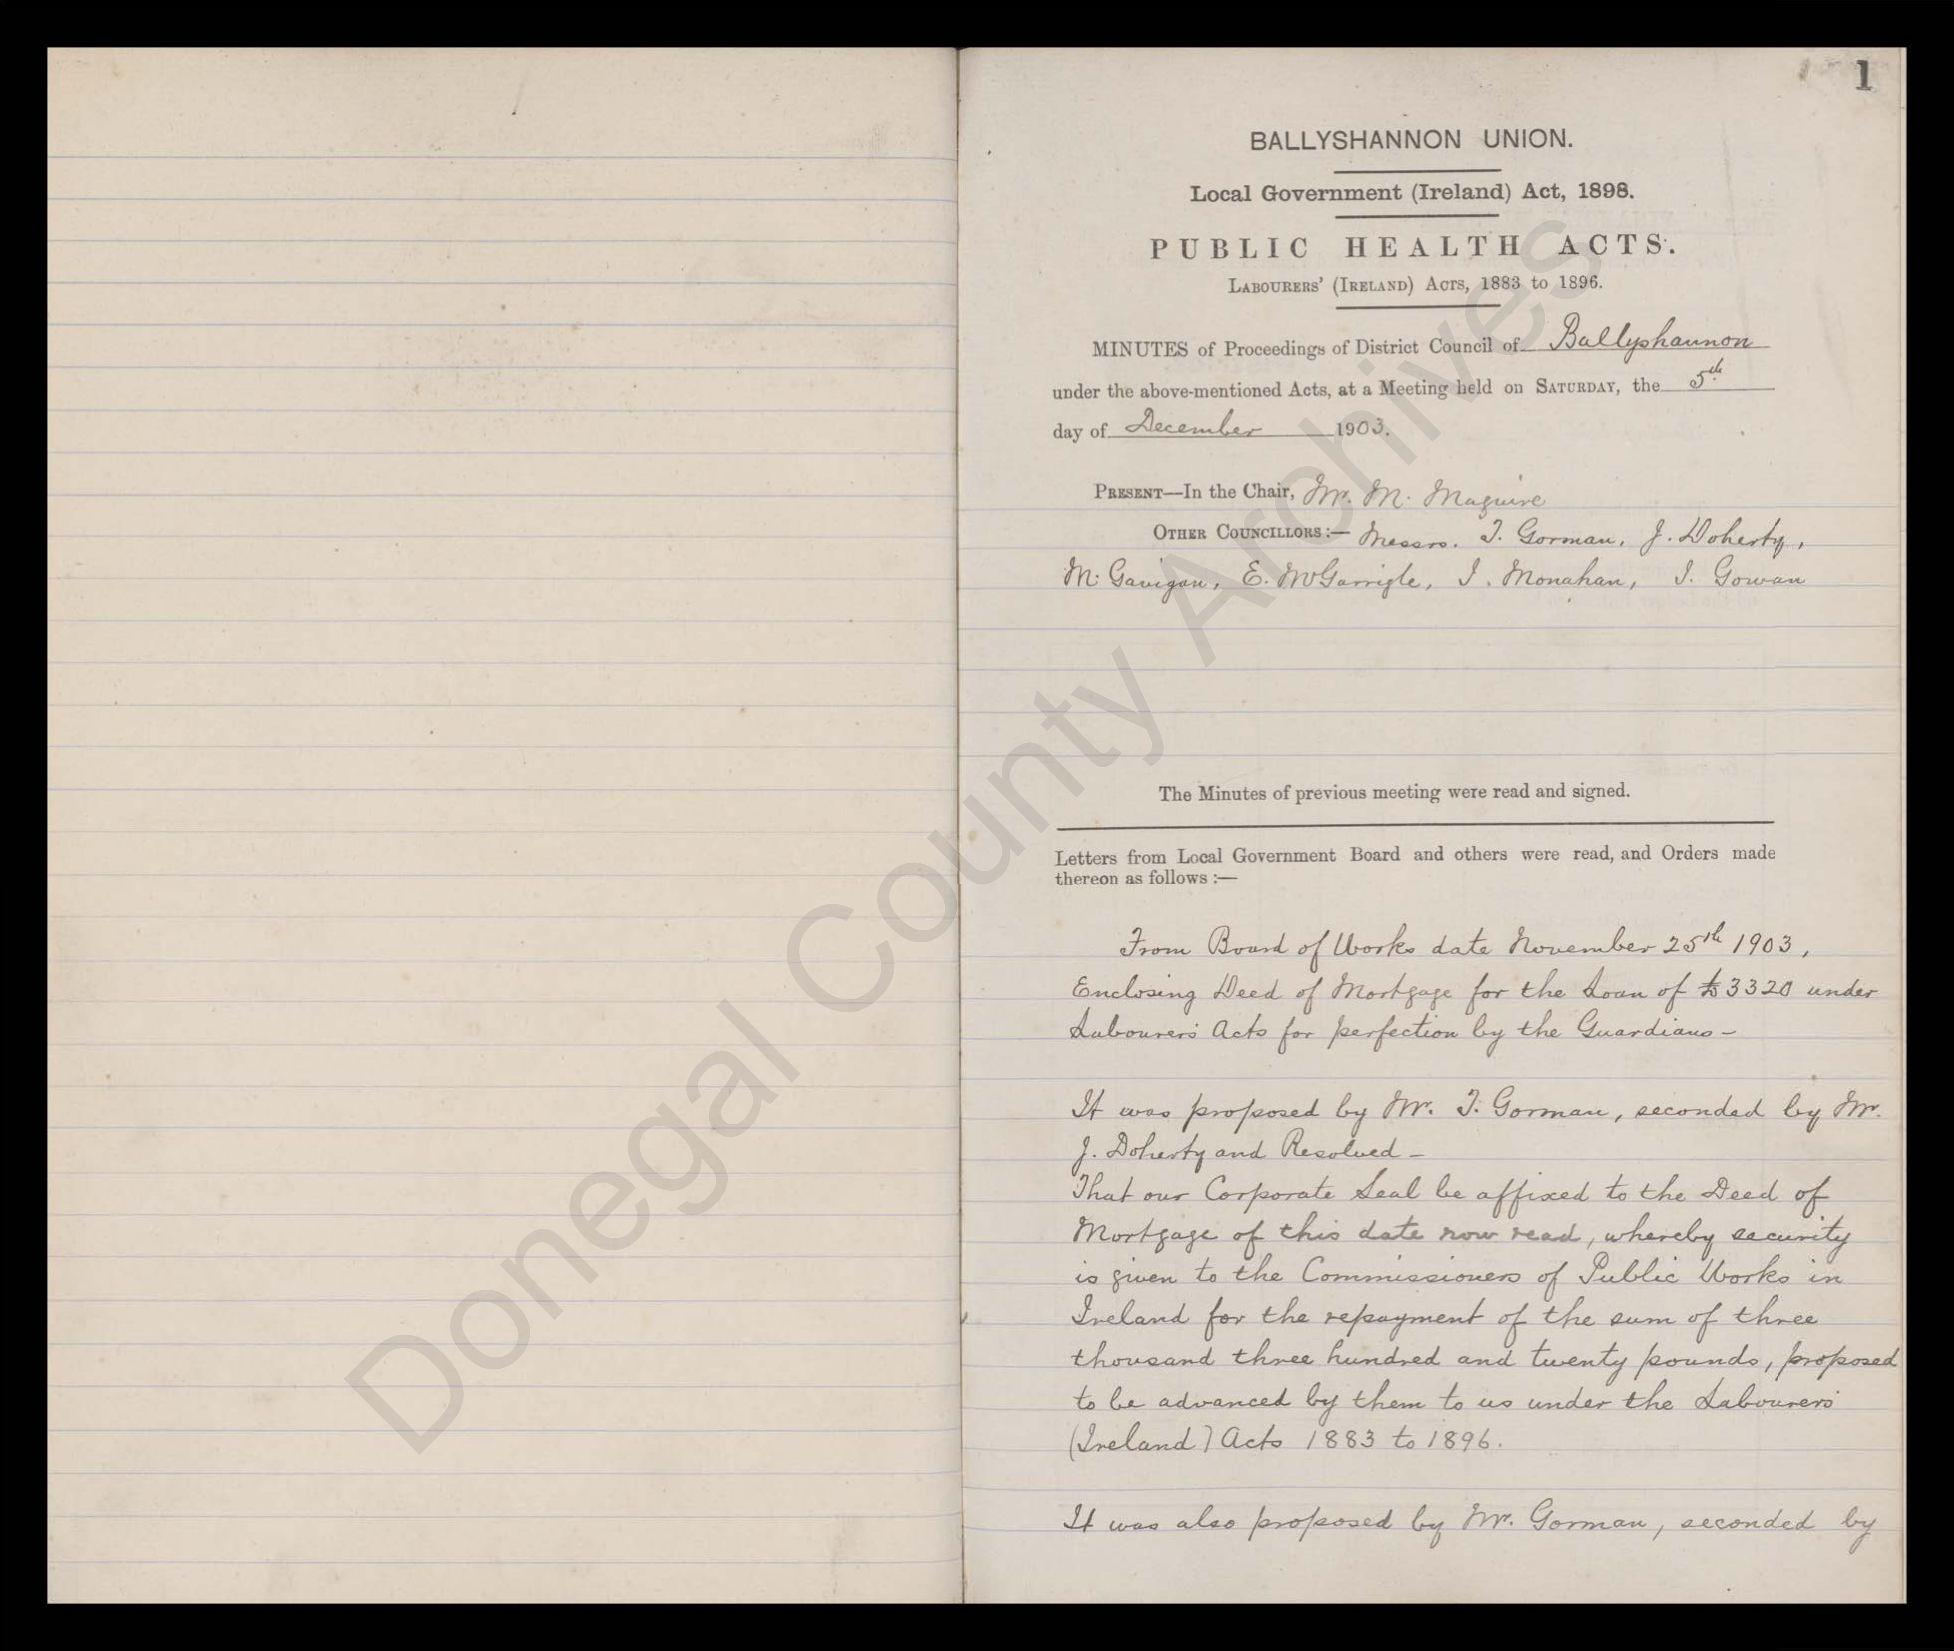 1
BALLYSHANNON UNION.
Local Government (Ireland) Act, 1898.
PUBLIC HEALTH ACTS.
LABOURERS' (IRELAND) ACTS, 1883 to 1896.
MINUTES of Proceedings of District Council of Ballyshannon
under the above-mentioned Acts, at a Meeting held on SATURDAY, the 5th
day of December 1903.
PRESENT—In the Chair, Mr. M. Maguire
OTHER COUNCILLORS:— Messrs. T. Gorman, J. Doherty,
M. Gavigan, E. McGarrigle, J. Monahan, J. Gowan
The Minutes of previous meeting were read and signed.
Letters from Local Government Board and others were read, and Orders made
thereon as follows :—
From Board of Works date November 25th 1903,
Enclosing Deed of Mortgage for the Loan of £3320 under
Labourers Acts for perfection by the Guardians –
It was proposed by Mr. T. Gorman, seconded by Mr.
J. Doherty and Resolved –
That our Corporate Seal be affixed to the Deed of
Mortgage of this date now read, whereby security
is given to the Commissioners of Public Works in
Ireland for the repayment of the sum of three
thousand three hundred and twenty pounds, proposed
to be advanced by them to us under the Labourers
(Ireland) Acts 1883 to 1896.
It was also proposed by Mr. Gorman, seconded by
Donegal County Archives